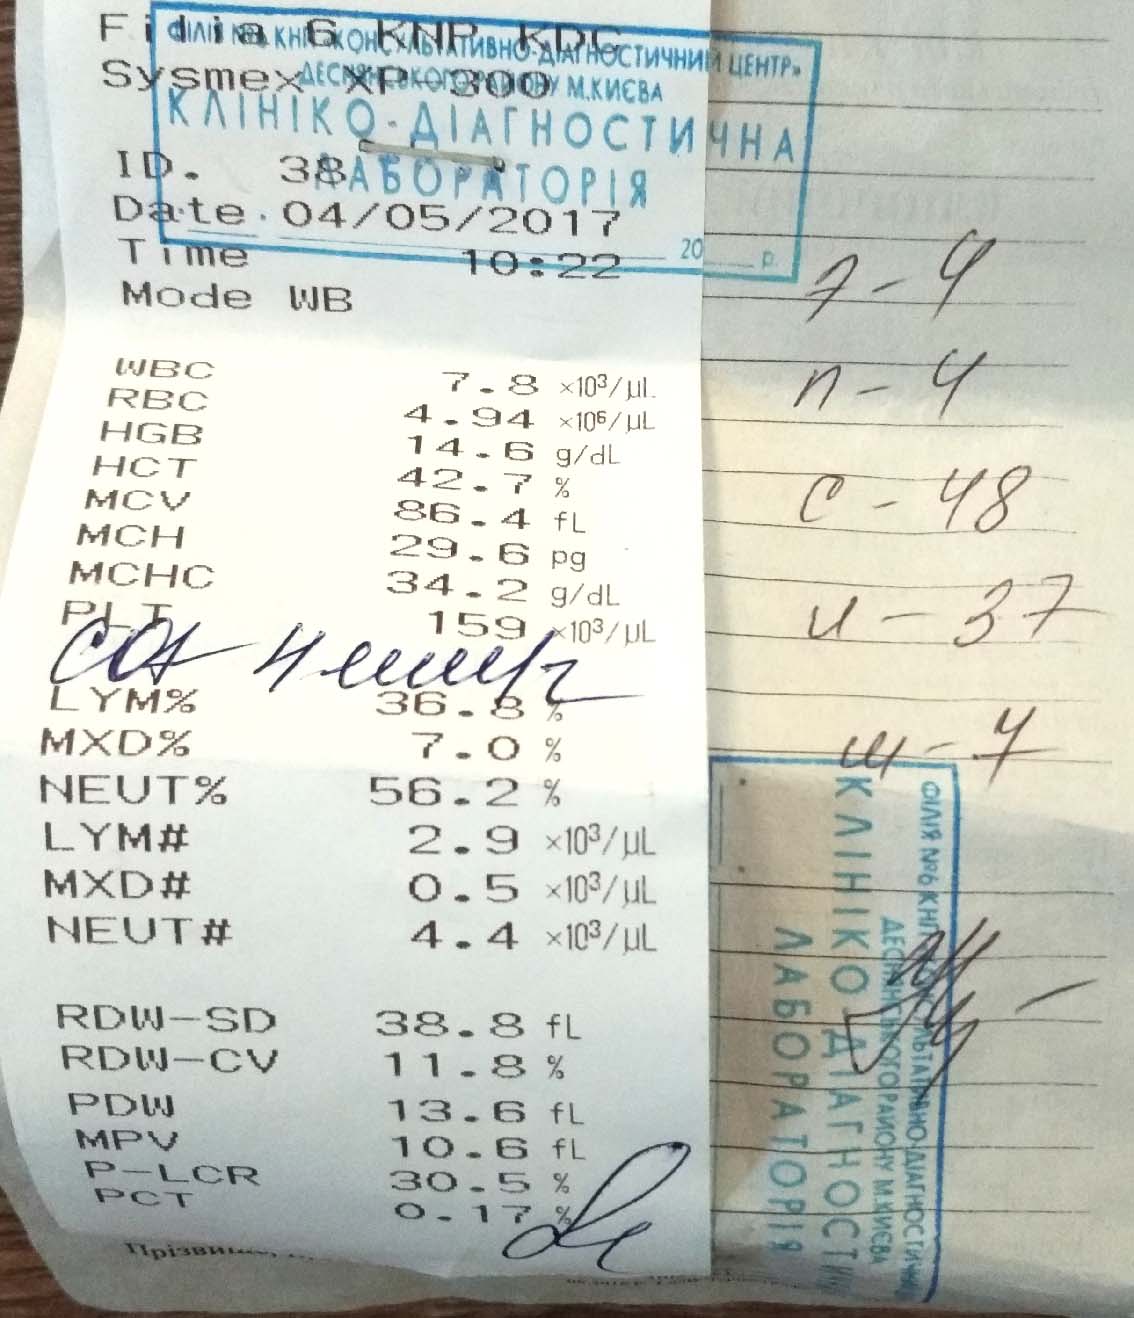 Fidia 6 KNP KDC
Sysmex XP-300
ФІЛІЯ №6 КНП «КОНСУЛЬТАТИВНО-ДІАГНОСТИЧНИЙ ЦЕНТР»
ДЕСНЯНСЬКОГО РАЙОНУ М.КИЄВА
КЛІНІКО-ДІАГНОСТИЧНА
ЛАБОРАТОРІЯ
20 р.
ID. 38
Date 04/05/2017
Time 10:22
Mode WB
WBC 7.8 ×10³/µL
RBC 4.94 ×10⁶/µL
HGB 14.6 g/dL
HCT 42.7 %
MCV 86.4 fL
MCH 29.6 pg
MCHC 34.2 g/dL
PLT 159 ×10³/µL
LYM% 36.8 %
MXD% 7.0 %
NEUT% 56.2 %
LYM# 2.9 ×10³/µL
MXD# 0.5 ×10³/µL
NEUT# 4.4 ×10³/µL
RDW-SD 38.8 fL
RDW-CV 11.8 %
PDW 13.6 fL
MPV 10.6 fL
P-LCR 30.5 %
PCT 0.17 %
п - 4
с - 48
л - 37
ФІЛІЯ №6 КНП «КОНСУЛЬТАТИВНО-ДІАГНОСТИЧНИЙ
ДЕСНЯНСЬКОГО РАЙОНУ М.КИЄВА
КЛІНІКО-ДІАГНОСТИ
ЛАБОРАТОРІЯ